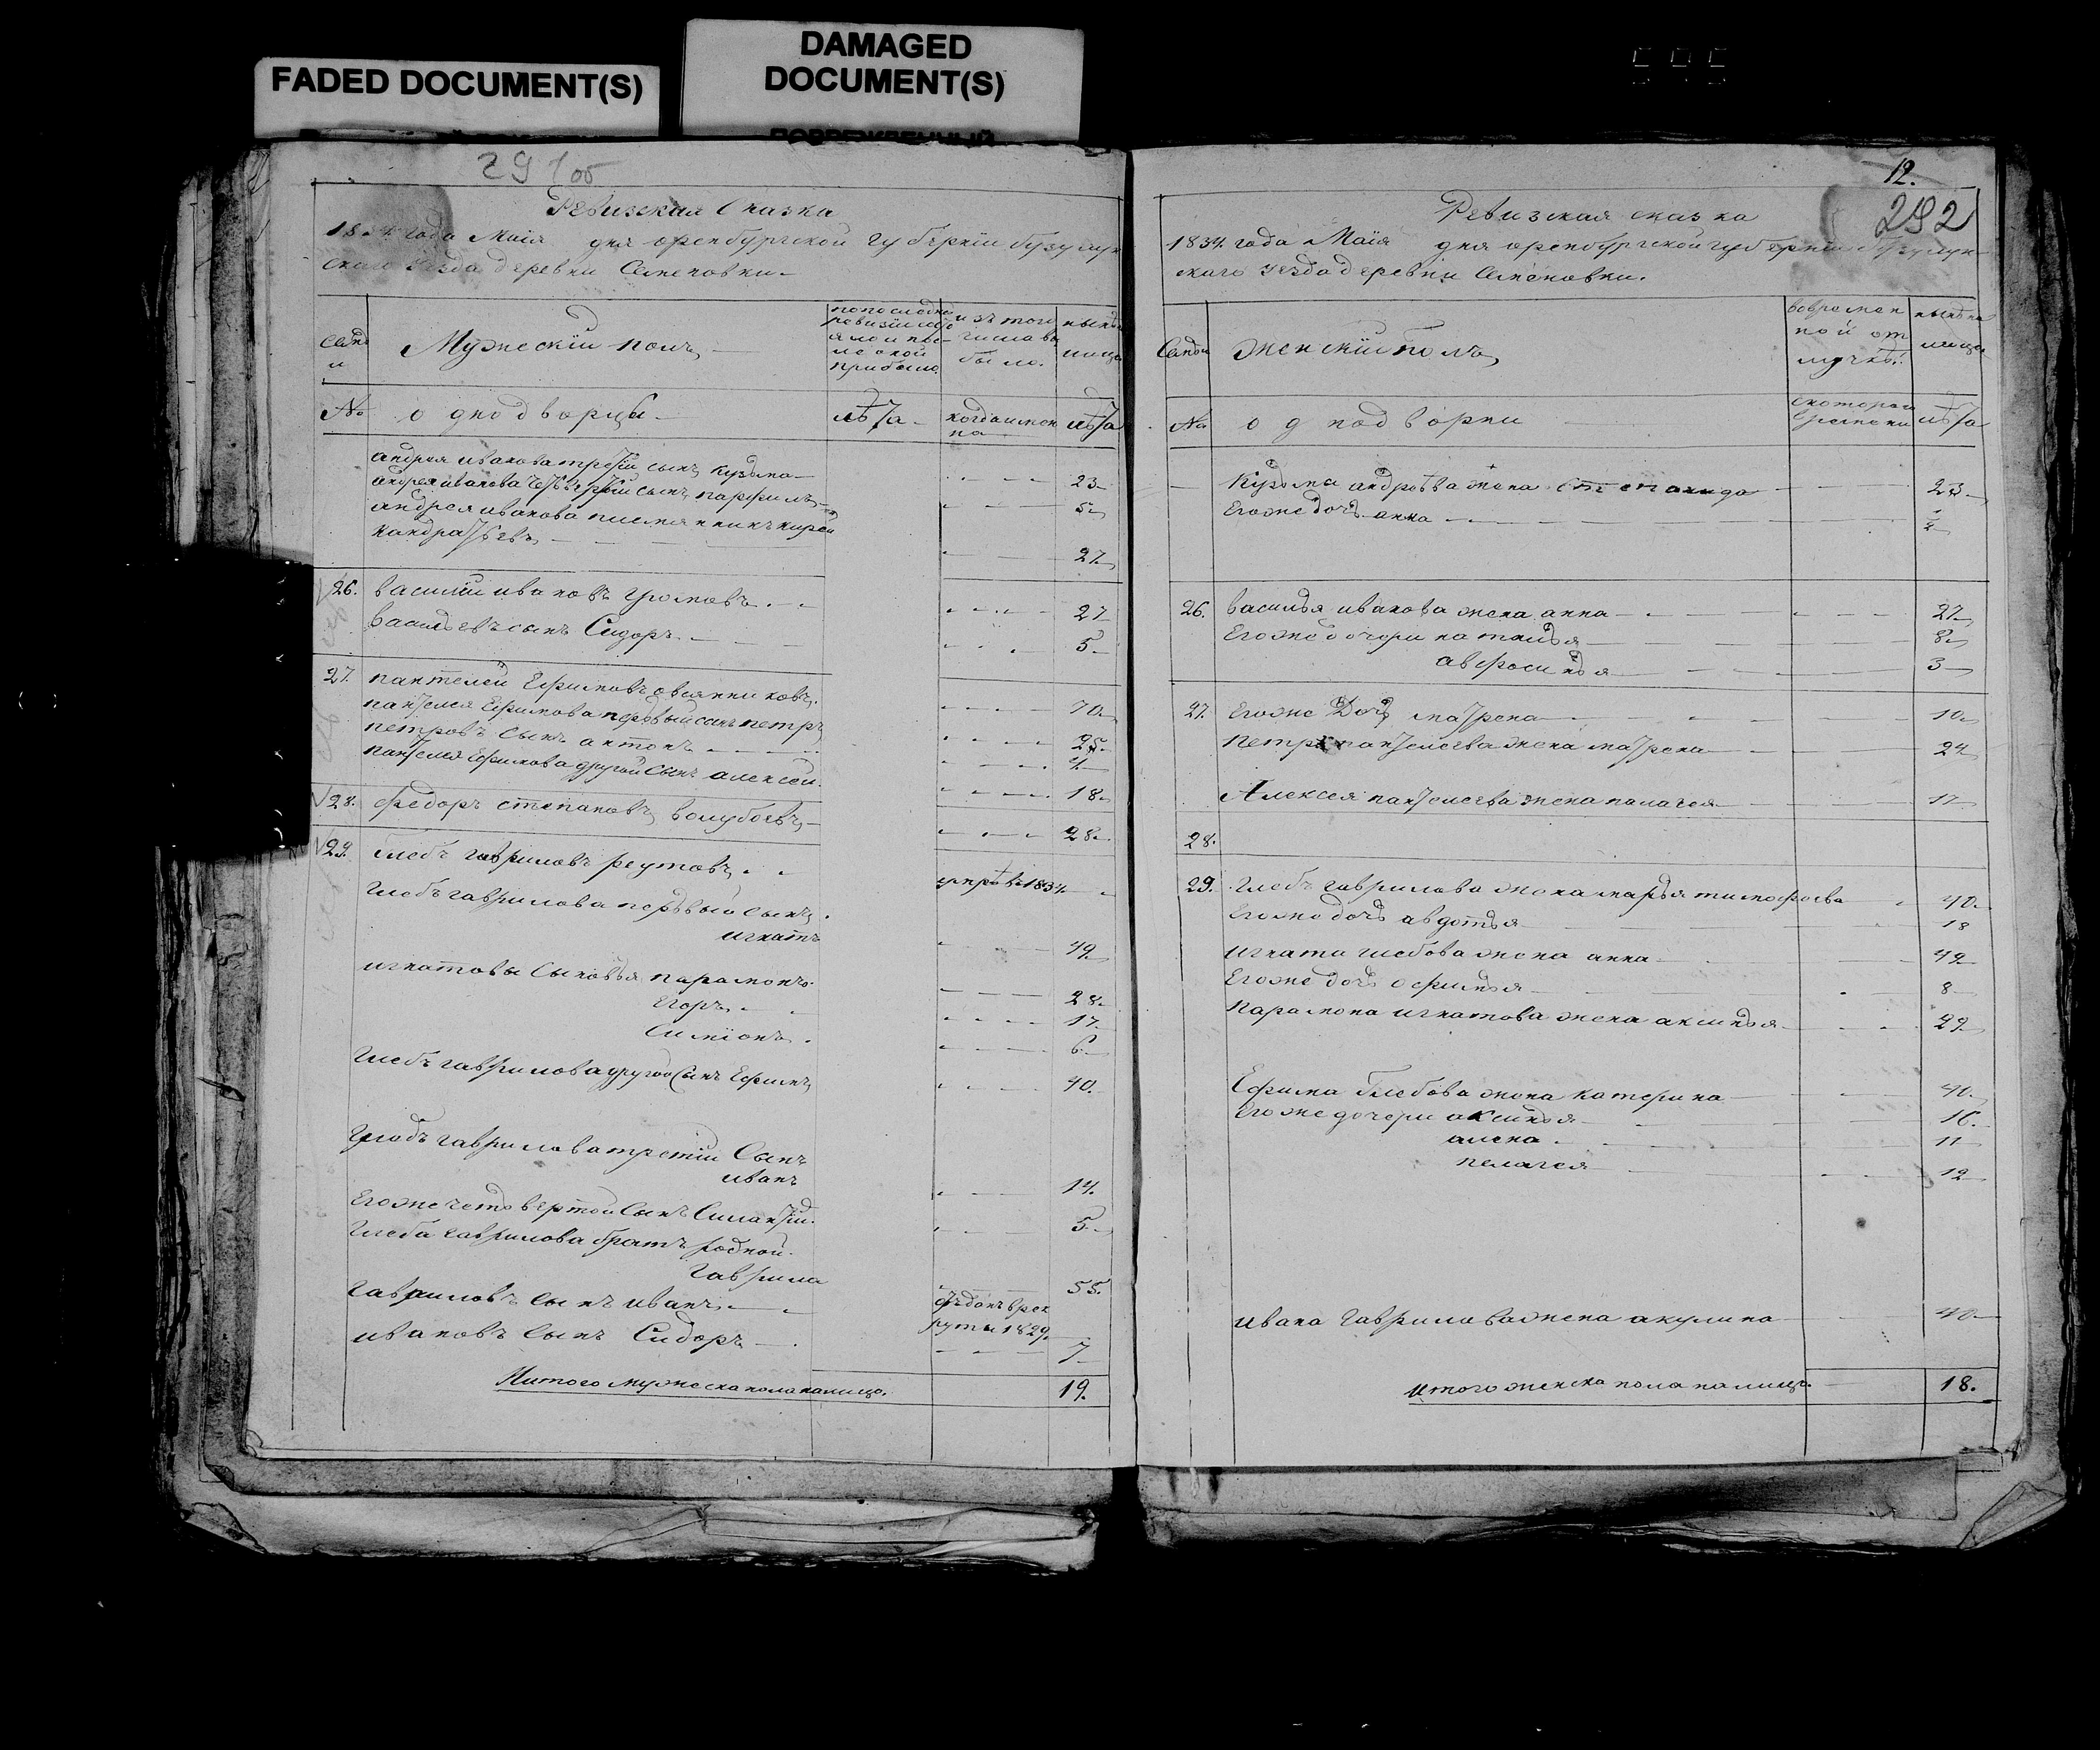 FADED DOCUMENT(S)
DAMAGED
DOCUMENT(S)
Ревизская Сказка
1834 года Маiя дня оренбургской губернiи бузулук
скаго уезда деревни Семеновки
Семьи
Мужескiй полъ
по последней
ревизiи состо
яло и по
сле оной
прибыло
изъ того
числа вы
было.
ныне на
лицо
№
однодворцы
лета
когда имен
но
лета
андрея иванова третiй сынъ кузьма 23
андрея иванова четвертый сынъ парфилъ 5
андрея иванова племянникъ
кандратьевъ 27
26. василiй ивановъ громовъ 27
васильевъ сынъ Сидоръ 5
27. пантелей Ефимовъ овсянниковъ 70
пантелея Ефимова первый сынъ петръ 25
петровъ сынъ антонъ 4
пантелея Ефимова другой сынъ алексей 18
28. федоръ степановъ волубоевъ 28
29. глебъ гавриловъ реутовъ умре въ 1834
глебъ гаврилова первый сынъ
игнатъ 49
игнатовы сыновья парамонъ 28
Егоръ 17
Симiонъ 6
глебъ гаврилова другой сынъ Ефимъ 40
глебъ гаврилова третiй Сынъ
иванъ 14
Егоже четвертой Сынъ Силантiй 5
глеба гаврилова братъ родной
гаврила 55
гавриловъ сынъ иванъ отданъ в рек
руты 1829
ивановъ сынъ Сидоръ 7
Итого мужеска пола налицо. 19.
12.
292
Ревизская сказка
1834 года Маiя дня оренбургской губернiи бузулук
скаго уезда деревни Семеновки.
Семьи
Женскiй полъ
во времен
ной от
лучке
ныне на
лицо
№
однодворки
с котораго
времени
лета
Кузьмы андреева жена степанида 23
Егоже дочь анна 1/2
26. василья иванова жена анна 27
Егоже дочери наталья 8
авфросинья 3
27. Егоже Дочь матрена 10
петра пантелеева жена матрена 24
Алексея пантелеева жена палагея 17
28.
29. глебъ гаврилова жена марья тимофеева 40
Егоже дочь авдотья 18
игната глебова жена анна 49
Егоже дочь офимья 8
парамона игнатова жена аксинья 29
Ефима Глебова жена катерина 40
Егоже дочери аксинья 16
алена 11
пелагея 12
ивана гаврилова жена акулина 40
итого женска пола налицо 18.